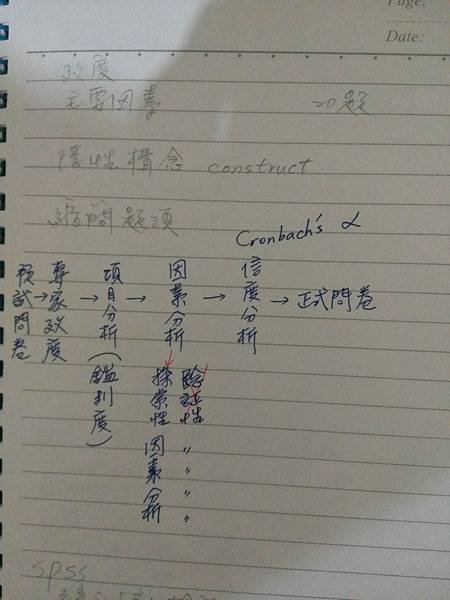 Page:
Date:
效度
主要因素 20題
隱性構念 construct
縮問題項
Cronbach's α
預試問卷→專家效度→項目分析→因素分析→信度分析→正式問卷
(鑑別度)
探索性因素分析
驗証性〃〃〃〃
spss